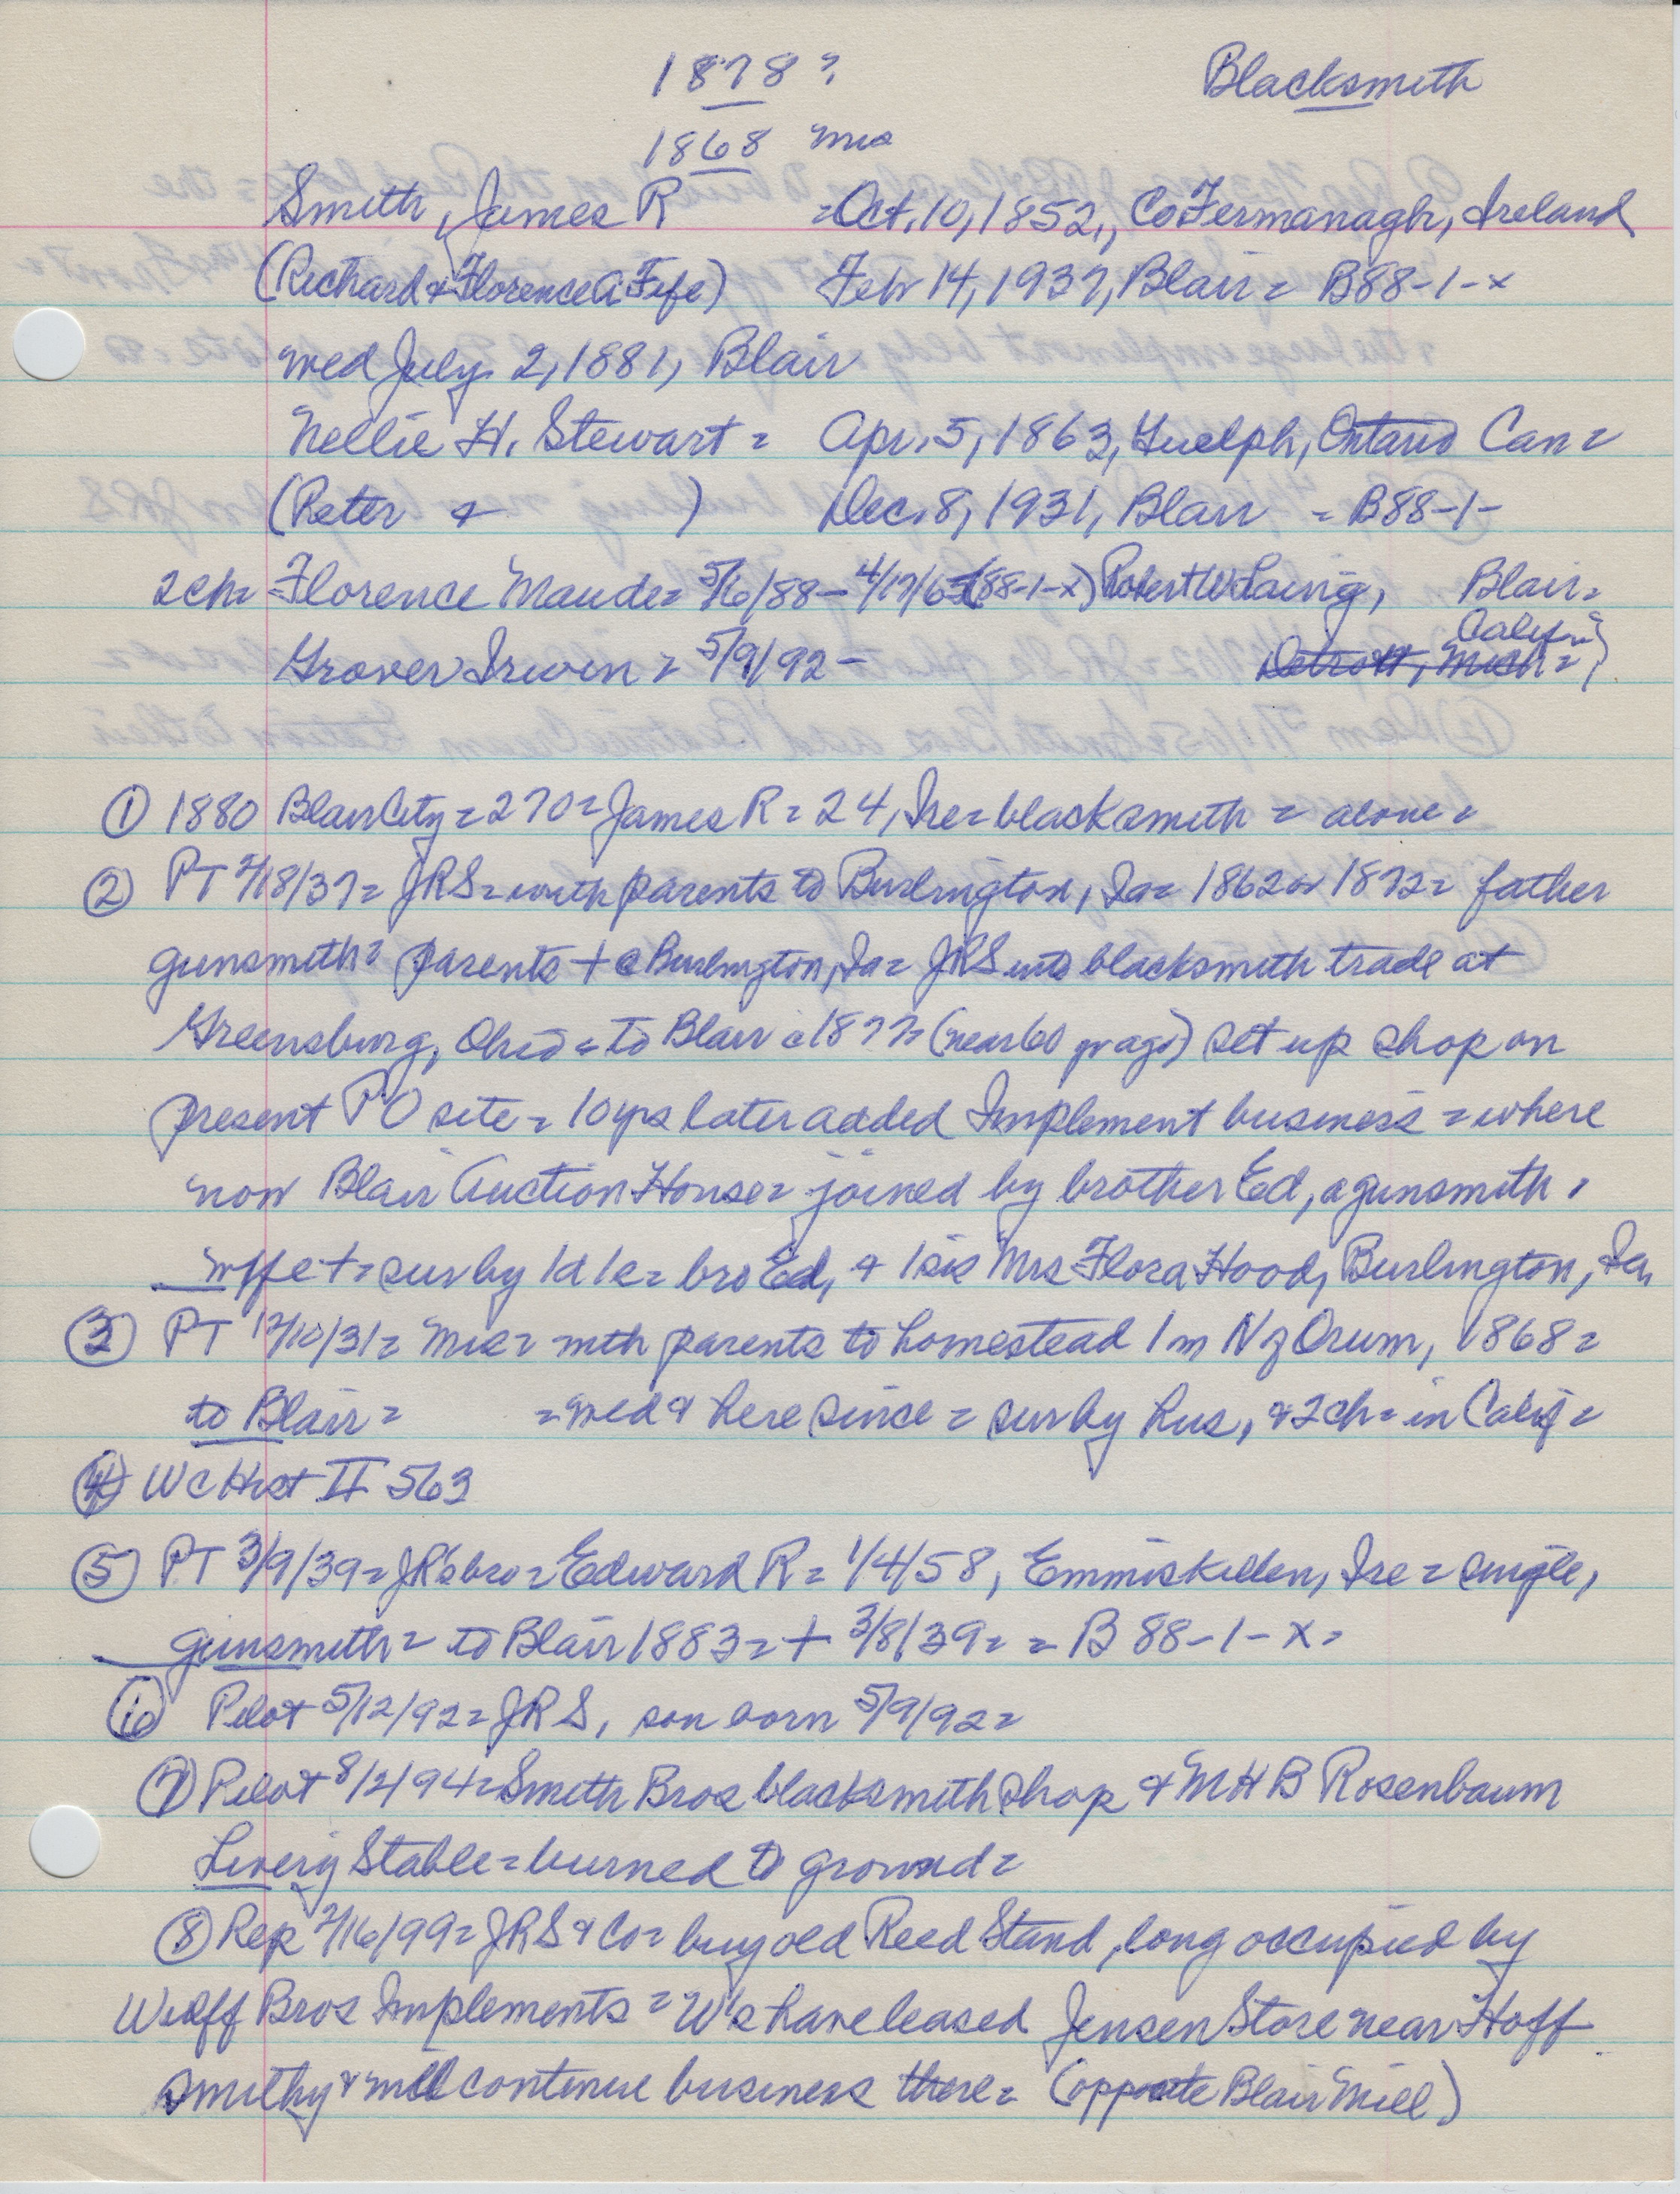 1878? Blacksmith
1868 mrs
Smith, James R = Oct. 10, 1852, Co Fermanagh, Ireland
(Richard & Florence A Fife) Feb 14, 1937, Blair = B88-1-x
med July 2, 1881, Blair
Nellie H. Stewart = Apr. 5, 1863, Guelph, Ontario Can =
(Peter & ) Dec. 8, 1931, Blair = B88-1-
2ch = Florence Maude = 5/6/88 - 4/17/65 (88-1-x) Robert W Laing, Blair =
Calif =
Grover Irwin = 5/9/92 - Detroit, Mich =
① 1880 Blair City = 270 = James R = 24, Ire = blacksmith = alone =
② PT 2/18/37 = JRS = with parents to Burlington, Ia = 1862 or 1872 = father
gunsmith = parents + @ Burlington, Ia = JRS into blacksmith trade at
Greensburg, Ohio = to Blair c 1877 = (near 60 yr ago) set up shop on
present PO site = 10 yrs later added Implement business = where
now Blair Auction House = joined by brother Ed, a gunsmith =
wife + = sur by 1d 1s = bro Ed, & 1 sis Mrs Flora Hood, Burlington, Ia,
③ PT 12/10/31 = Mrs = with parents to homestead 1 m N of Orum, 1868 =
to Blair = = med & here since = sur by hus, & 2ch = in Calif =
④ WC Hist II 563
⑤ PT 3/9/39 = JR's bro = Edward R = 1/4/58, Emmiskillen, Ire = single,
gunsmith = to Blair 1883 = + 3/8/39 = = B 88-1-x =
⑥ Pilot 5/12/92 = JRS, son born 5/9/92 =
⑦ Pilot 8/2/94 = Smith Bros blacksmith shop & M H B Rosenbaum
Livery Stable = burned to ground =
⑧ Rep 2/16/99 = JRS & Co = buy old Reed Stand, long occupied by
Wolff Bros Implements = W's have leased Jensen Store near Hoff
smithy & will continue business there = (opposite Blair Mill)